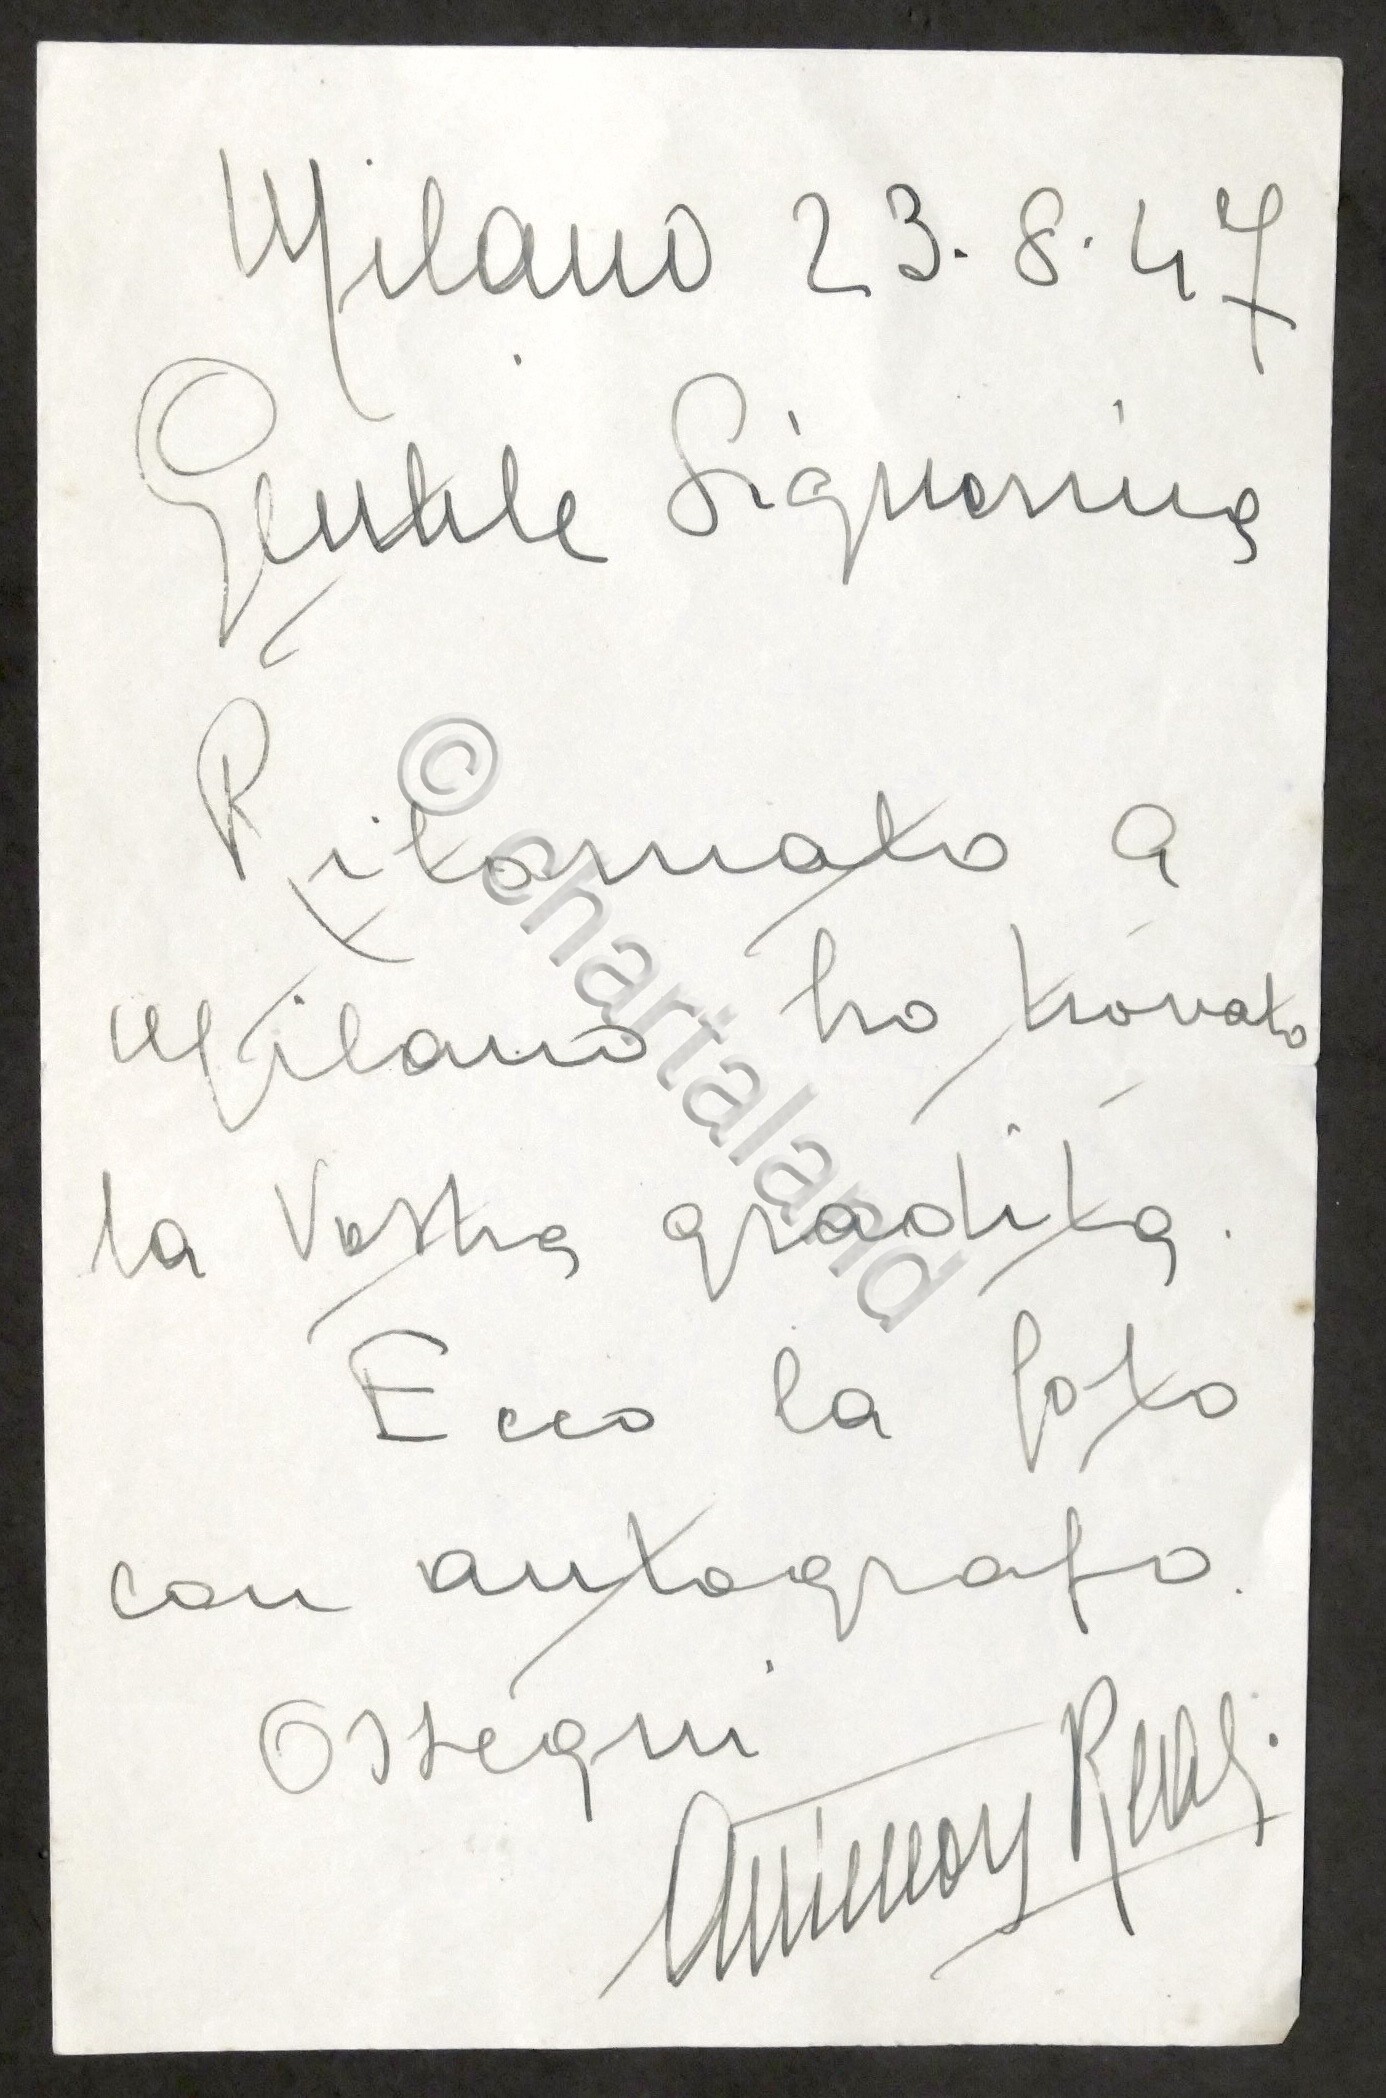 Milano 23.8.47
Gentile Signorina
Ritornato a
Milano ho trovato
la Vostra gradita.
Ecco la foto
con autografo.
Ossequi
© chartaland